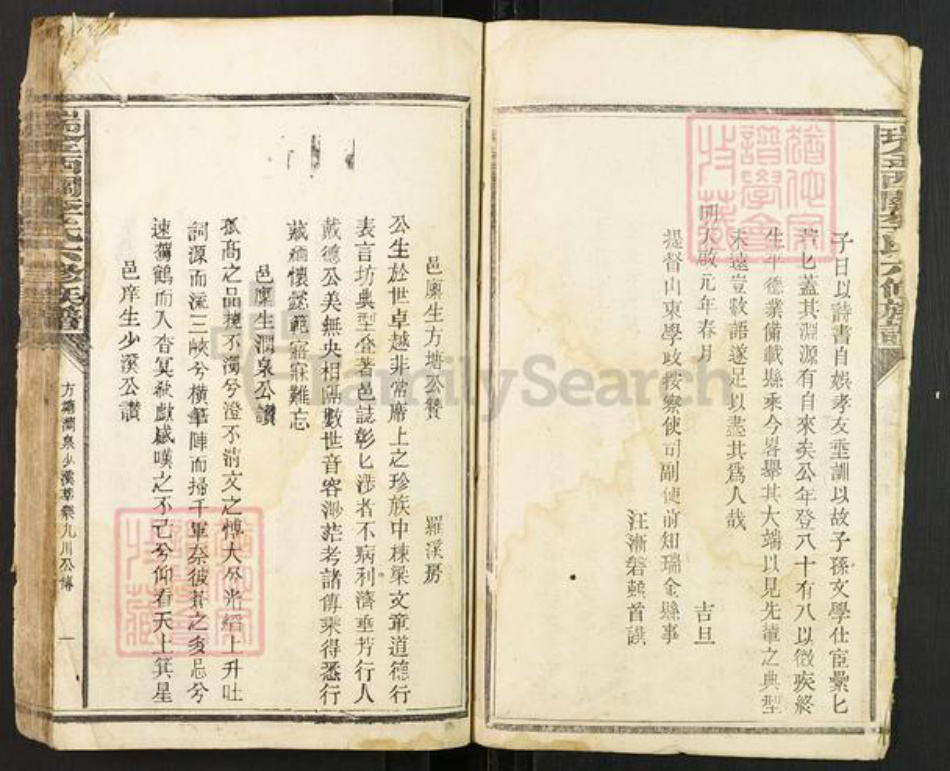 子曰以詩書自娛孝友垂訓以故子孫文學仕宦纍匕
匕蓋其淵源有自來矣公年登八十有八以微疾終
生平德業備載縣乘今畧舉其大端以見先輩之典型
未遠豈敢語遂足以盡其爲人哉
明天啟元年春月 吉旦
提督山東學政按察使司副使前知瑞金縣事
汪漸磐頓首譔
邑廩生方塘公贊 羅溪房
公生於世卓越非常席上之珍族中棟梁文章道德行
表言坊典型叠著邑誌彰匕涉者不病利濟垂芳行人
戴德公美無央相隔數世音容渺茫考諸傳乘得悉行
藏緬懷懿範寤寐難忘
邑廩生澗泉公讃
孤高之品撓不濁兮澄不淸文之愽大兮光熖上升吐
詞源而流三峽兮橫筆陣而掃千軍奈彼蒼之多忌兮
速駕鶴而入杳冥欷歔感嘆之不已兮仰看天上箕星
邑庠生少溪公讃
方塘澗泉少溪 樂九川公傳
一
FamilySearch